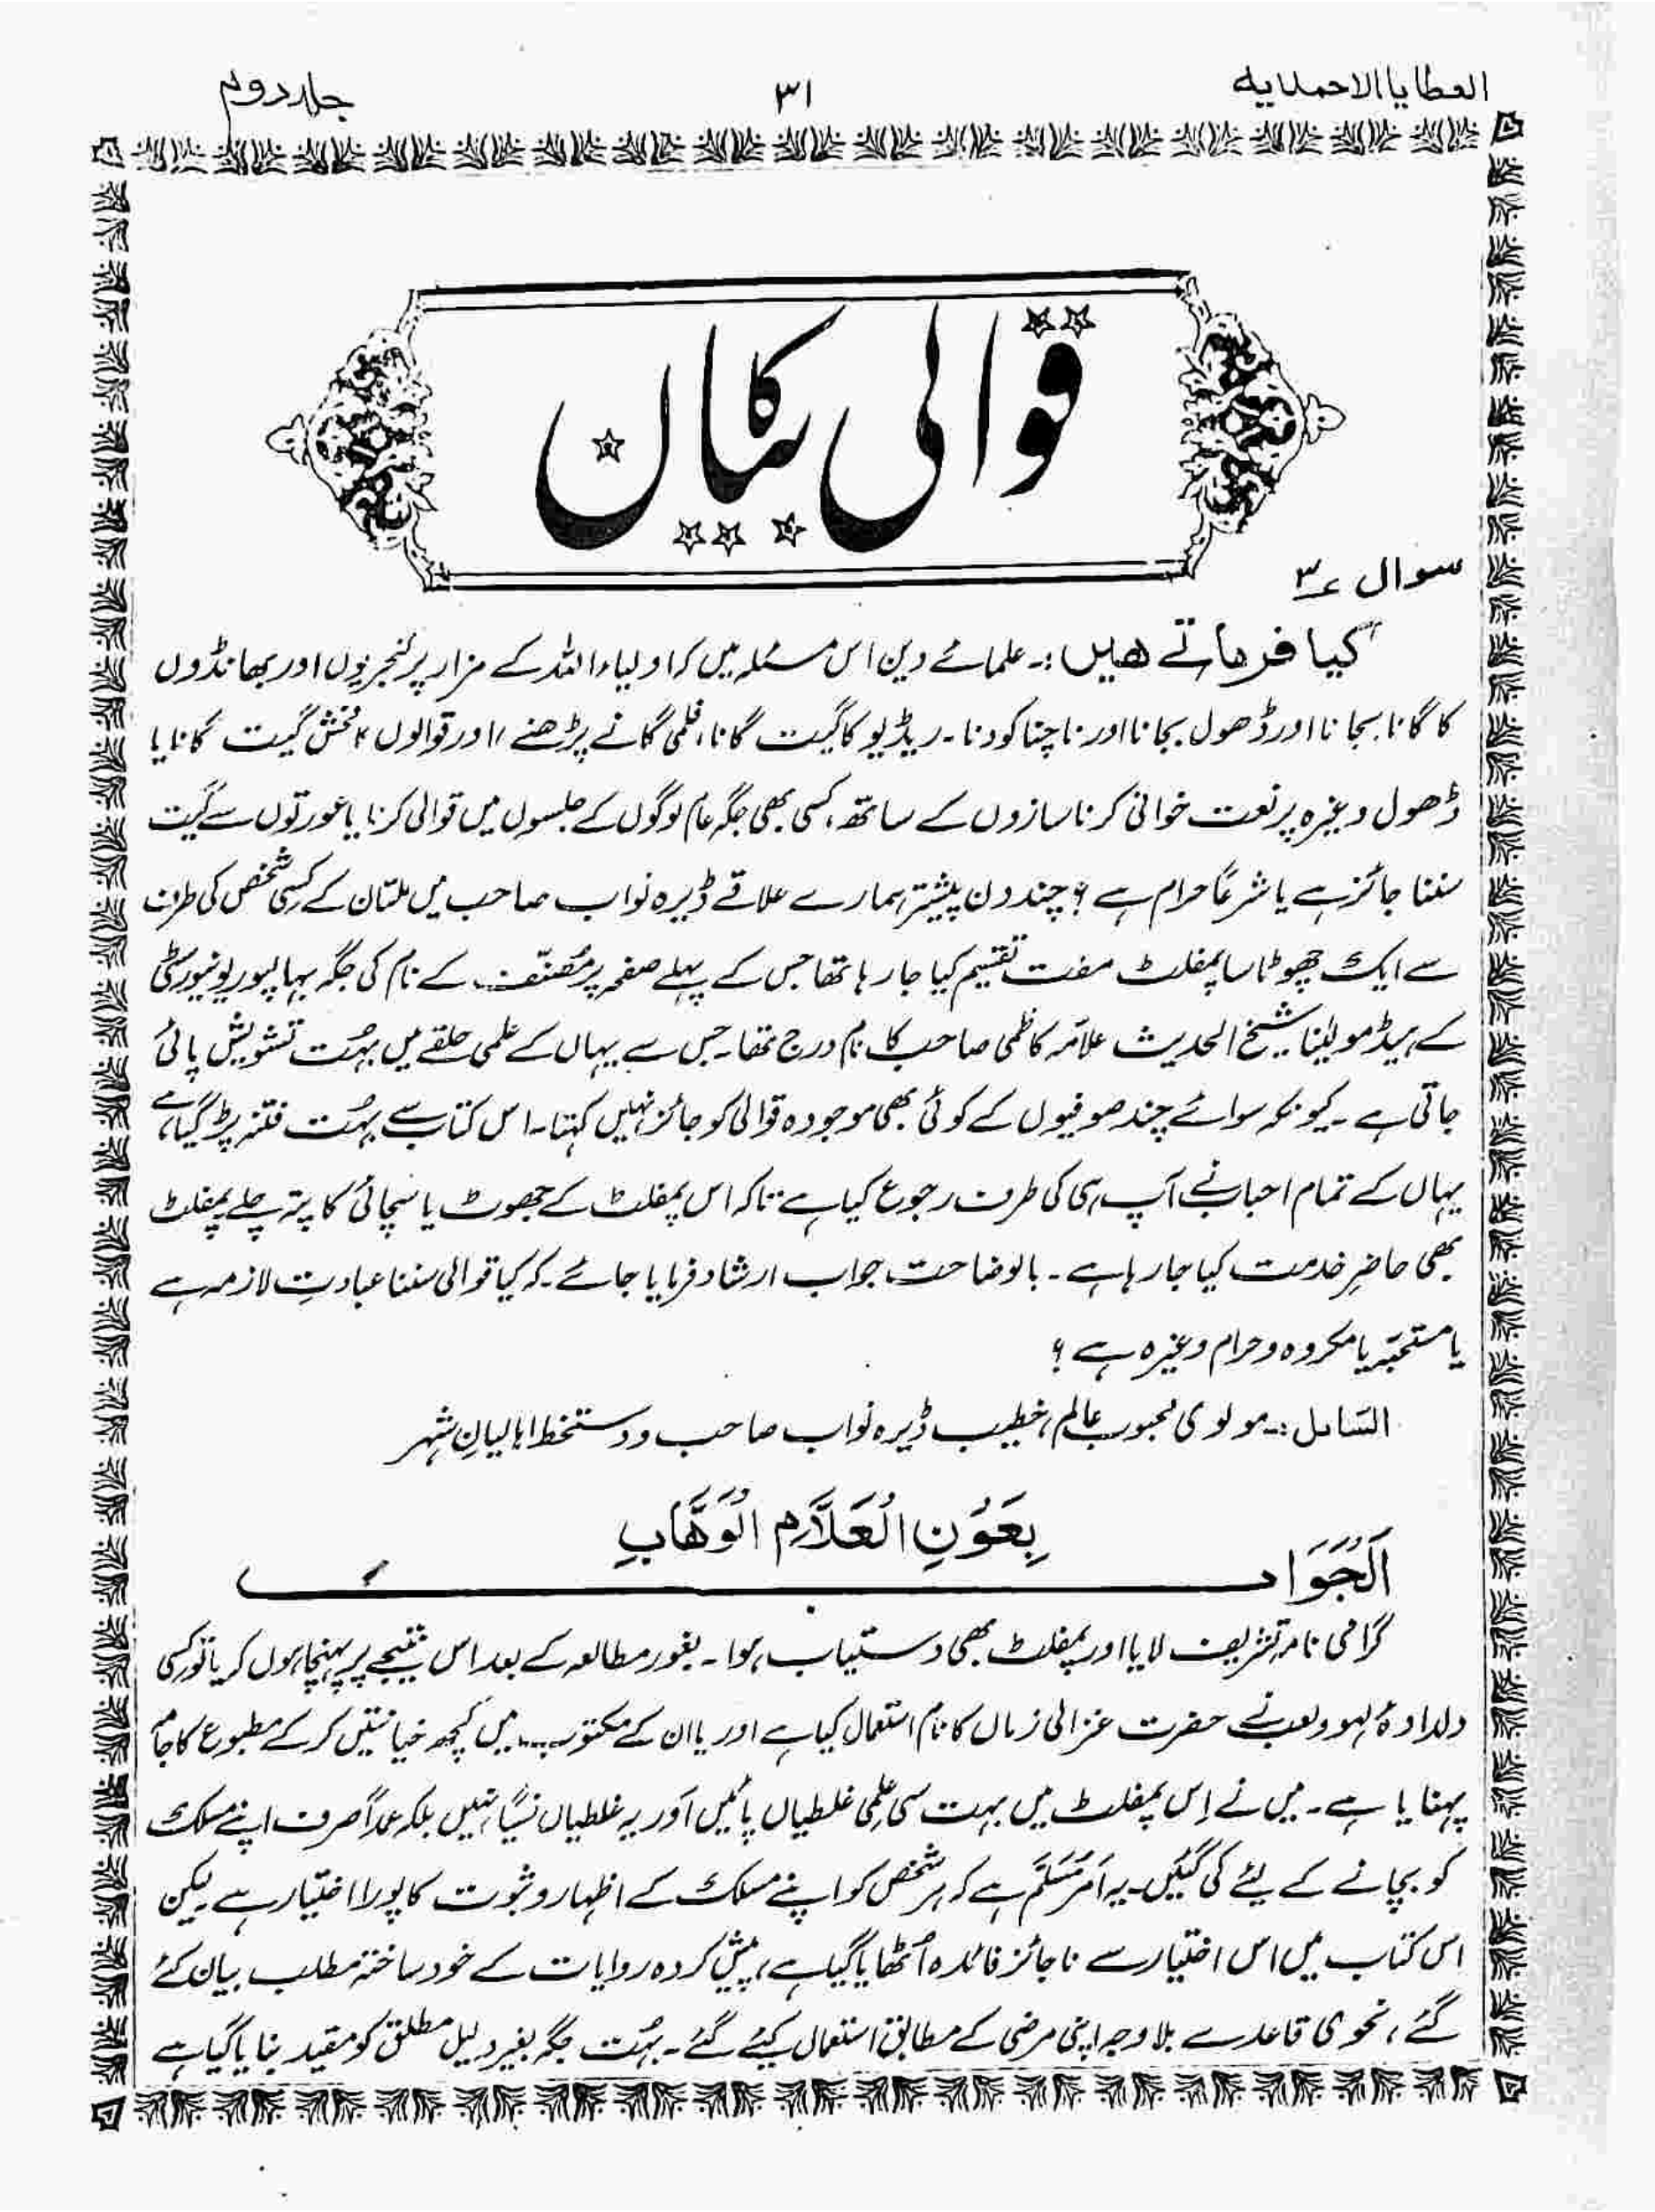 العطایا الاحمدیہ ۳۱ جلد دوم
قوالی کا بیان
سوال ۳؎
کیا فرماتے ھیں :۔ علمائے دین اس مسئلہ میں کہ اولیاء اللہ کے مزار پر کنجریوں اور بھانڈوں
کا گانا بجانا اور ڈھول بجانا اور ناچنا کودنا۔ ریڈیو کا گیت گانا، فلمی گانے پڑھنے، اور قوالوں کا فحش گیت گانا یا
ڈھول وغیرہ پر نعت خوانی کرنا سازوں کے ساتھ، کسی بھی جگہ عام لوگوں کے جلسوں میں قوالی کرنا یا عورتوں سے گیت
سننا جائز ہے یا شرعًا حرام ہے؟ چند دن پیشتر ہمارے علاقے ڈیرہ نواب صاحب میں ملتان کے کسی شخص کی طرف
سے ایک چھوٹا سا پمفلٹ مفت تقسیم کیا جا رہا تھا جس کے پہلے صفحہ پر مُصنّف کے نام کی جگہ بہاولپور یونیورسٹی
کے ہیڈ مولیٰنا شیخ الحدیث علامہ کاظمی صاحب کا نام درج تھا۔ جس سے یہاں کے علمی حلقے میں بہُت تشویش پائی
جاتی ہے۔ کیونکہ سوائے چند صوفیوں کے کوئی بھی موجودہ قوالی کو جائز نہیں کہتا۔ اس کتاب سے بہُت فتنہ پڑ گیا ہے،
یہاں کے تمام احباب نے آپ ہی کی طرف رجوع کیا ہے تاکہ اس پمفلٹ کے جھوٹ یا سچائی کا پتہ چلے پمفلٹ
بھی حاضرِ خدمت کیا جا رہا ہے۔ بالوضاحت جواب ارشاد فرمایا جائے۔ کہ کیا قوالی سننا عبادتِ لازمہ ہے
یا مستحبّہ یا مکروہ و حرام وغیرہ ہے؟
السَّائل :۔ مولوی محبوب عالم، خطیب ڈیرہ نواب صاحب و دستخط اہالیانِ شہر
بِعَوْنِ الْعَلَّامِ الْوَھَّابِ
اَلْجَوَابــــــــــــ
گرامی نامہ تشریف لایا اور پمفلٹ بھی دستیاب ہوا۔ بغور مطالعہ کے بعد اس نتیجے پر پہنچا ہوں کہ یا تو کسی
دلدادۂ لہو و لعب نے حضرت غزالی زماں کا نام استعمال کیا ہے اور یا ان کے مکتوب میں کچھ خیانتیں کر کے مطبوع کا جامہ
پہنایا ہے۔ میں نے اِس پمفلٹ میں بہت سی علمی غلطیاں پائیں اور یہ غلطیاں نسیًا نہیں بلکہ عمدًا صرف اپنے مسلک
کو بچانے کے لیے کی گئیں۔ یہ اَمر مُسَلَّم ہے کہ ہر شخص کو اپنے مسلک کے اظہار و ثبوت کا پورا اختیار ہے لیکن
اس کتاب میں اس اختیار سے ناجائز فائدہ اُٹھایا گیا ہے، پیش کردہ روایات کے خود ساختہ مطلب بیان کئے
گئے، نحوی قاعدے بلا وجہ اپنی مرضی کے مطابق استعمال کیئے گئے۔ بہُت جگہ بغیر دلیل مطلق کو مقید بنایا گیا ہے